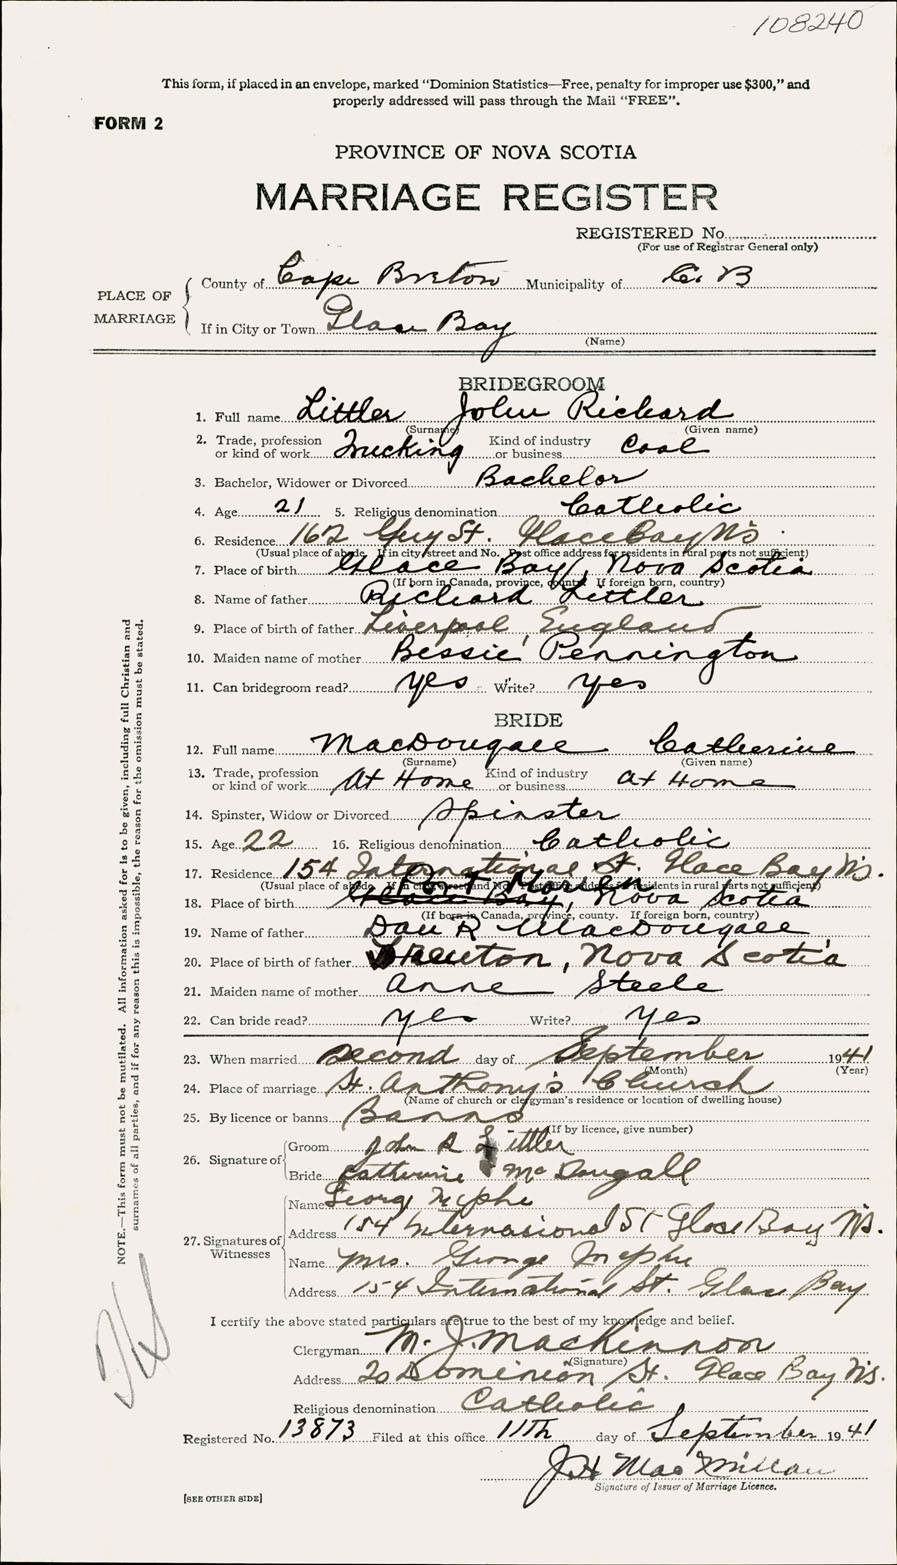 108240
This form, if placed in an envelope, marked "Dominion Statistics—Free, penalty for improper use $300," and
properly addressed will pass through the Mail "FREE".
FORM 2
PROVINCE OF NOVA SCOTIA
MARRIAGE REGISTER
REGISTERED No.
(For use of Registrar General only)
PLACE OF MARRIAGE
County of Cape Breton Municipality of C. B
If in City or Town Glace Bay
(Name)
BRIDEGROOM
1. Full name Littler John Richard
(Surname) (Given name)
2. Trade, profession or kind of work Trucking Kind of industry or business Coal
3. Bachelor, Widower or Divorced Bachelor
4. Age 21 5. Religious denomination Catholic
6. Residence 162 Guy St. Glace Bay N.S.
(Usual place of abode. If in city street and No. Post office address for residents in rural parts not sufficient)
7. Place of birth Glace Bay, Nova Scotia
(If born in Canada, province, county. If foreign born, country)
8. Name of father Richard Littler
9. Place of birth of father Liverpool, England
10. Maiden name of mother Bessie Pennington
11. Can bridegroom read? yes Write? yes
BRIDE
12. Full name MacDougall Catherine
(Surname) (Given name)
13. Trade, profession or kind of work At Home Kind of industry or business at Home
14. Spinster, Widow or Divorced Spinster
15. Age 22 16. Religious denomination Catholic
17. Residence 154 International St. Glace Bay N.S.
(Usual place of abode. If in city street and No. Post office address for residents in rural parts not sufficient)
18. Place of birth Glace Bay, Nova Scotia
(If born in Canada, province, county. If foreign born, country)
19. Name of father Dan R MacDougall
20. Place of birth of father Nova Scotia
21. Maiden name of mother Anne Steele
22. Can bride read? yes Write? yes
23. When married second day of September 1941
(Month) (Year)
24. Place of marriage St. Anthony's Church
(Name of church or clergyman's residence or location of dwelling house)
25. By licence or banns Banns
(If by licence, give number)
26. Signature of
Groom John R Littler
Bride Catherine McDougall
27. Signatures of Witnesses
Name George Mcphe
Address 154 Internasional St Glace Bay N.S.
Name Mrs. George Mcphe
Address 154 International St. Glace Bay
I certify the above stated particulars are true to the best of my knowledge and belief.
Clergyman M. J. MacKinnon
(Signature)
Address 20 Dominion St. Glace Bay N.S.
Religious denomination Catholic
Registered No. 13873 Filed at this office 11th day of September 1941
J H MacMillan
Signature of Issuer of Marriage Licence.
[SEE OTHER SIDE]
NOTE.—This form must not be mutilated. All information asked for is to be given, including full Christian and
surnames of all parties, and if for any reason this is impossible, the reason for the omission must be stated.